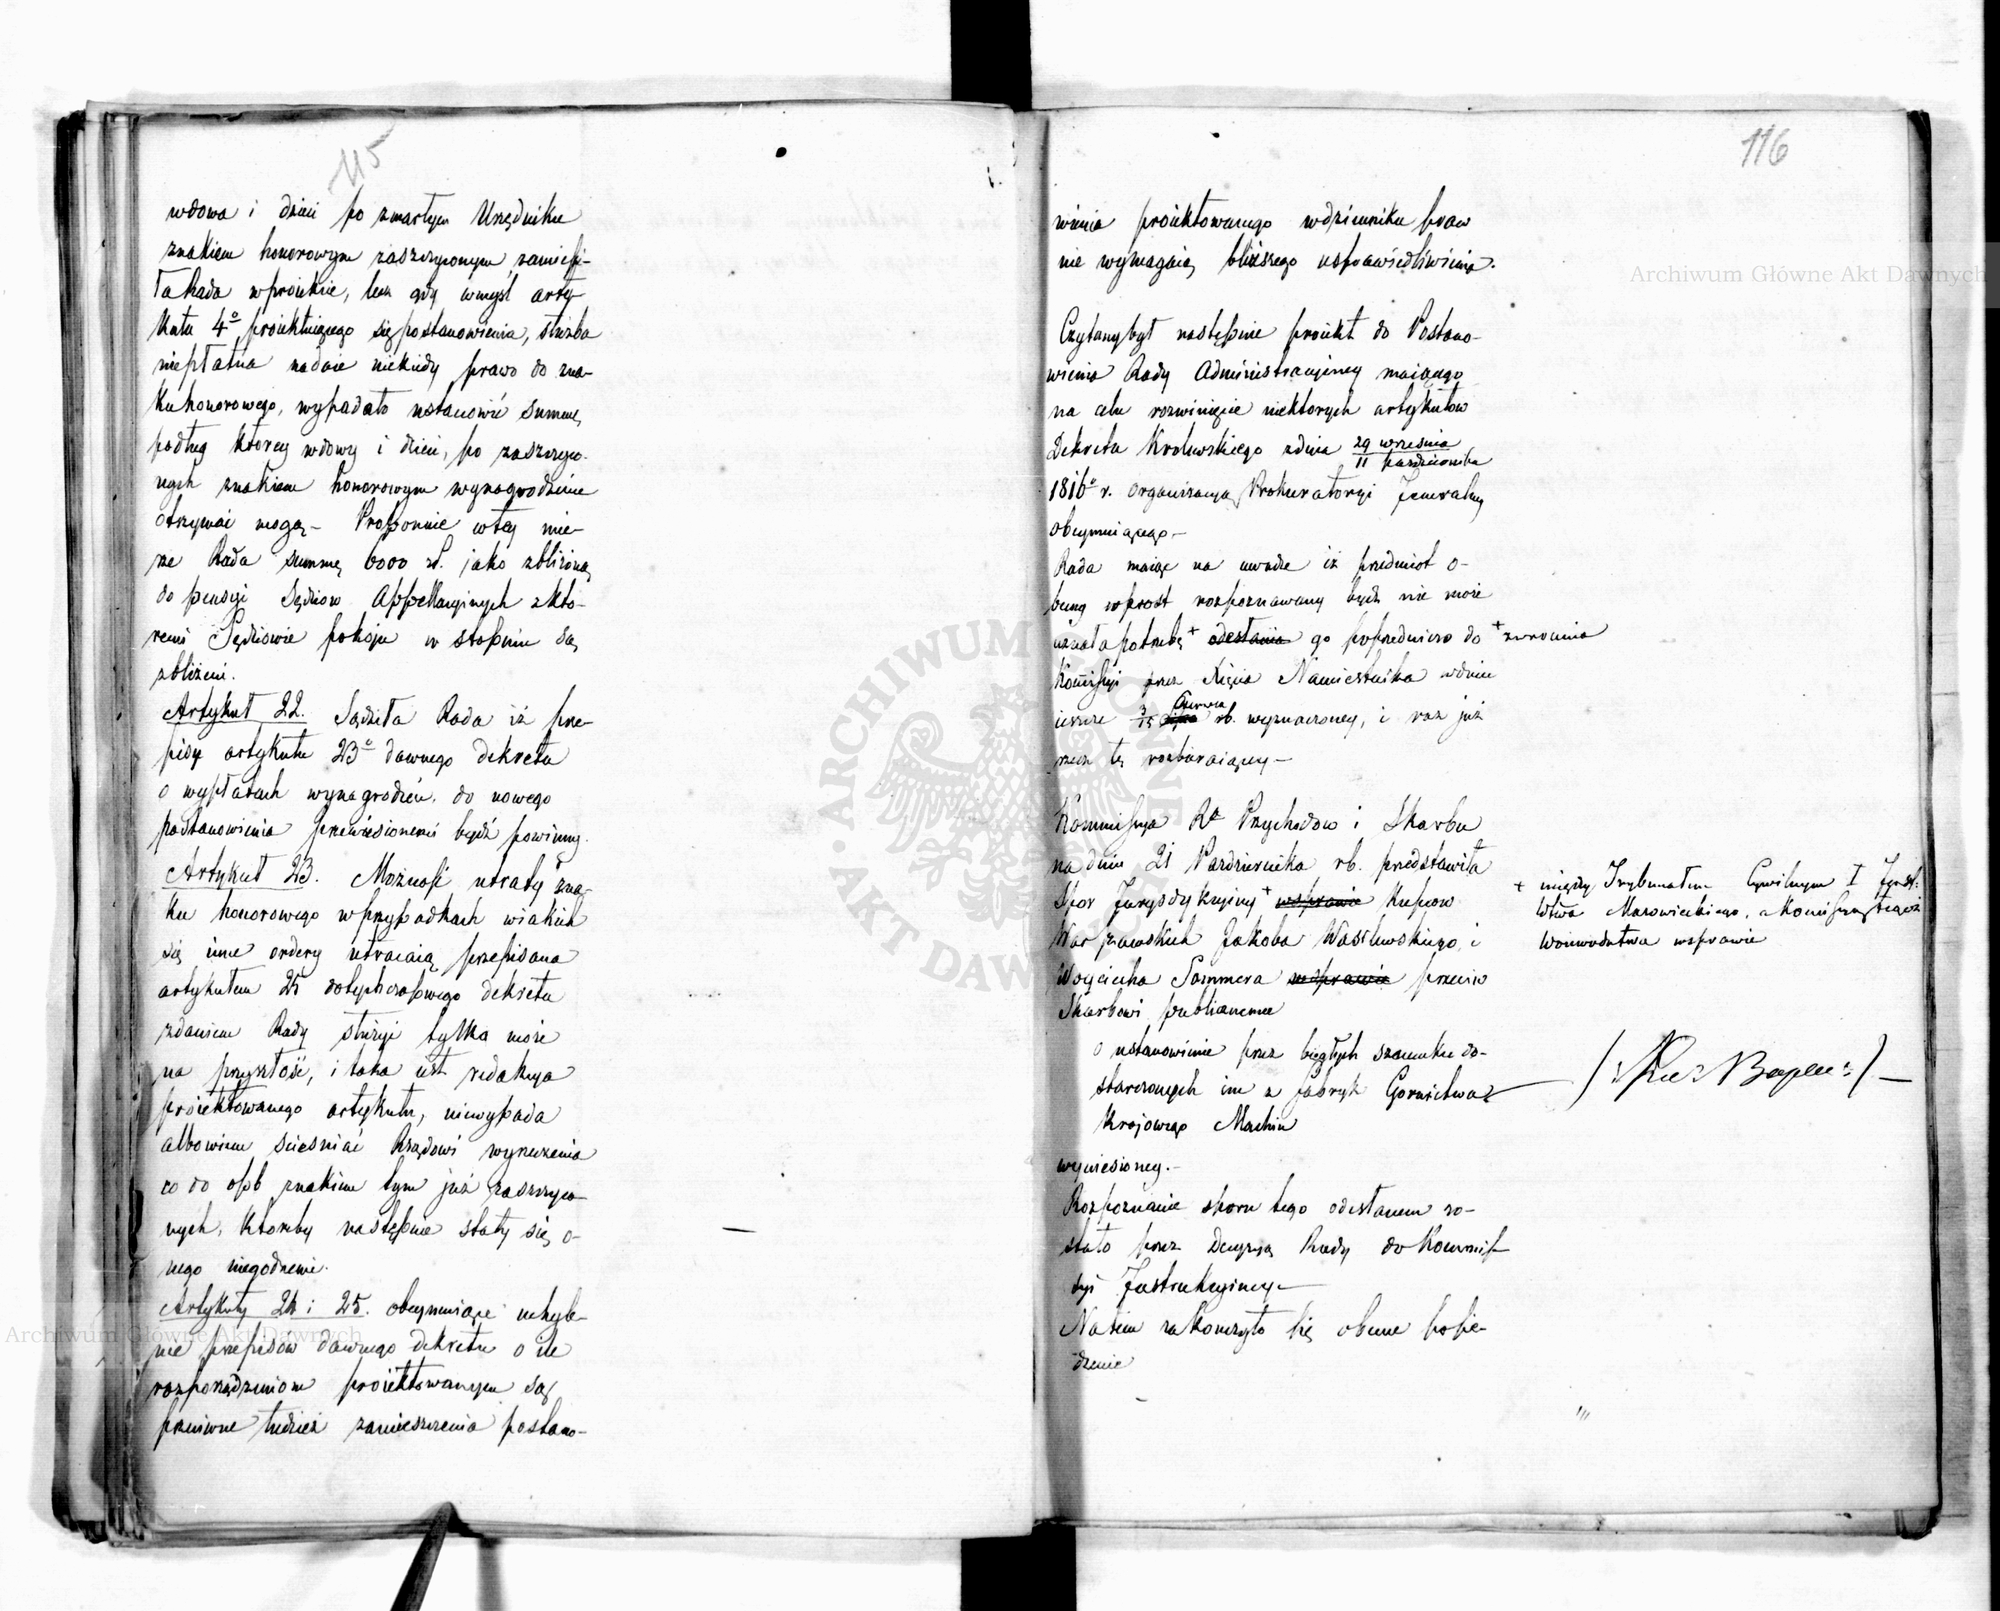 115
wdowa i dzieci po zmarłym Urzędniku
znakiem honorowym zaszczyconym zamieści-
ła Rada w proiekcie, lecz gdy w myśl arty-
kułu 4º proiektuiącego się postanowienia, służba
niepłatna nadaie niekiedy prawo do zna-
ku honorowego, wypadało ustanowić summę,
podług ktorey wdowy i dzieci, po zaszczyco-
nych znakiem honorowym wynagrodzenie
otrzymać mogą - Proponuie w tey mie-
rze Rada summę 6000 zł. jako zbliżoną
do pensyi Sędziow Appellacyinych z kto-
remi Sędziowie pokoju w stopniu są
zbliżeni.
Artykuł 22. Sądziła Rada iż prze-
pisy artykułu 23º dawnego dekretu
o wypłatach wynagrodzeń do nowego
postanowienia przeniesionemi bydź powinny.
Artykuł 23. Możność utraty zna-
ku honorowego w przypadkach w iakich
się inne ordery utracaią przepisana
artykułem 25 dotychczasowego dekretu
zdaniem Rady służyć tylko może
na przyszłość, i taka iest redakcya
proiektowanego artykułu, niewypada
albowiem scieśniać Rządowi wyrzeczenia
co do osób znakiem tym już zaszczyco-
nych, ktoreby następnie stały się o-
nego niegodnemi.
Artykuły 24 i 25. obeymuiące uchyle-
nie przepisów dawnego dekretu o ile
rozporządzeniom proiektowanym są
przeciwne tudzież zamieszczenia postano-
116
wienia proiektowanego w dzienniku praw
nie wymagaią bliższego usprawiedliwienia.
Czytany był następnie proiekt do Postano-
wienia Rady Administracyiney maiącego
na celu rozwinięcie niektorych artykułow
Dekretu Krolewskiego z dnia 29 września
11 pazdziernika
1816º r. organizacyą Prokuratoryi Jeneralney
obeymuiącego -
Rada maiąc na uwadze iż przedmiot o-
becny wprost rozpoznawany bydź nie może
uznała potrzebę + odesłania go poprzedniczo do + zwrocenia
Kommissyi przez Xięcia Namiestnika w dniu
ieszcze 3/15 Czerwca rb. wyznaczoney, i raz już
rzecz tę rozbieraiącey -
Kommissya Rª Przychodow i Skarbu
na dniu 21 Pazdziernika rb. przedstawiła
Spor Jurysdykcyiny + w sprawie Kupcow
+ między Trybunałem Cywilnym I Inst.
Wtwa Mazowieckiego, a Kommissyą tegoż
Woiewodztwa w sprawie
Warszawskich Jakóba Wasilewskiego i
Woyciecha Sommera w sprawie przeciw
Skarbowi publicznemu
o ustanowienie przez biegłych szacunku do-
starczonych im z fabryk Gornictwa
Krajowego Machin
wyniesioney. -
Rozpoznanie sporu tego odesłanem zo-
stało przez Decyzyą Rady do Kommis-
syi Instrukcyiney -
Na tem zakonczyło się obecne posie-
dzenie